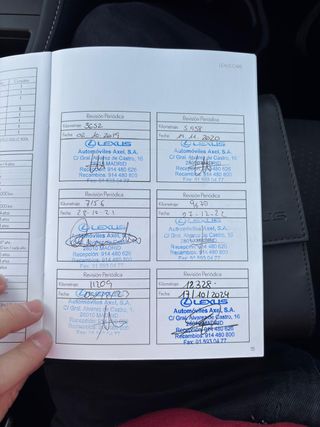 LEXUS CARE
Revisión Periódica
Kilometraje: 3652
Fecha: 02.10.2019
LEXUS
Automóviles Axel, S.A.
C/ Gral. Álvarez de Castro, 16
28010 MADRID
Recepción: 914 480 626
Recambios: 914 480 800
Fax: 91 593 04 77
Revisión Periódica
Kilometraje:
Fecha: 2020
LEXUS
Automóviles Axel, S.A.
C/ Gral. Álvarez de Castro, 16
MADRID
Recepción: 914 480 626
Recambios: 914 480 800
Fax: 91 593 04 77
Revisión Periódica
Kilometraje: 7156
Fecha: 28-10-21
LEXUS
Automóviles Axel,
28010 MADRID
Recepción: 914 480 626
Recambios: 914 480 800
Fax: 91 593 04 77
Revisión Periódica
Kilometraje:
Fecha: 07-12-22
LEXUS
Automóviles Axel, S.A.
C/ Gral. Álvarez de Castro, 16
MADRID
Recepción: 914 480 626
Recambios: 914 480 800
Fax: 91 593 04 77
Revisión Periódica
Kilometraje: 11209
Fecha:
LEXUS
Automóviles Axel, S.A.
C/ Gral. Álvarez de Castro,
28010 MADRID
Recepción: 914 480
Recambios: 914 480 800
Fax: 91 593 04 77
Revisión Periódica
Kilometraje: 12.328
Fecha: 17/10/2024
LEXUS
Automóviles Axel, S.A.
C/ Gral. Álvarez de Castro, 16
MADRID
Recepción: 914 480 626
Recambios: 914 480 800
Fax: 91 593 04 77
15